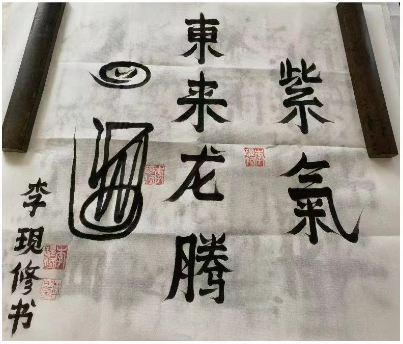 紫氣
東来龙腾
李現修书